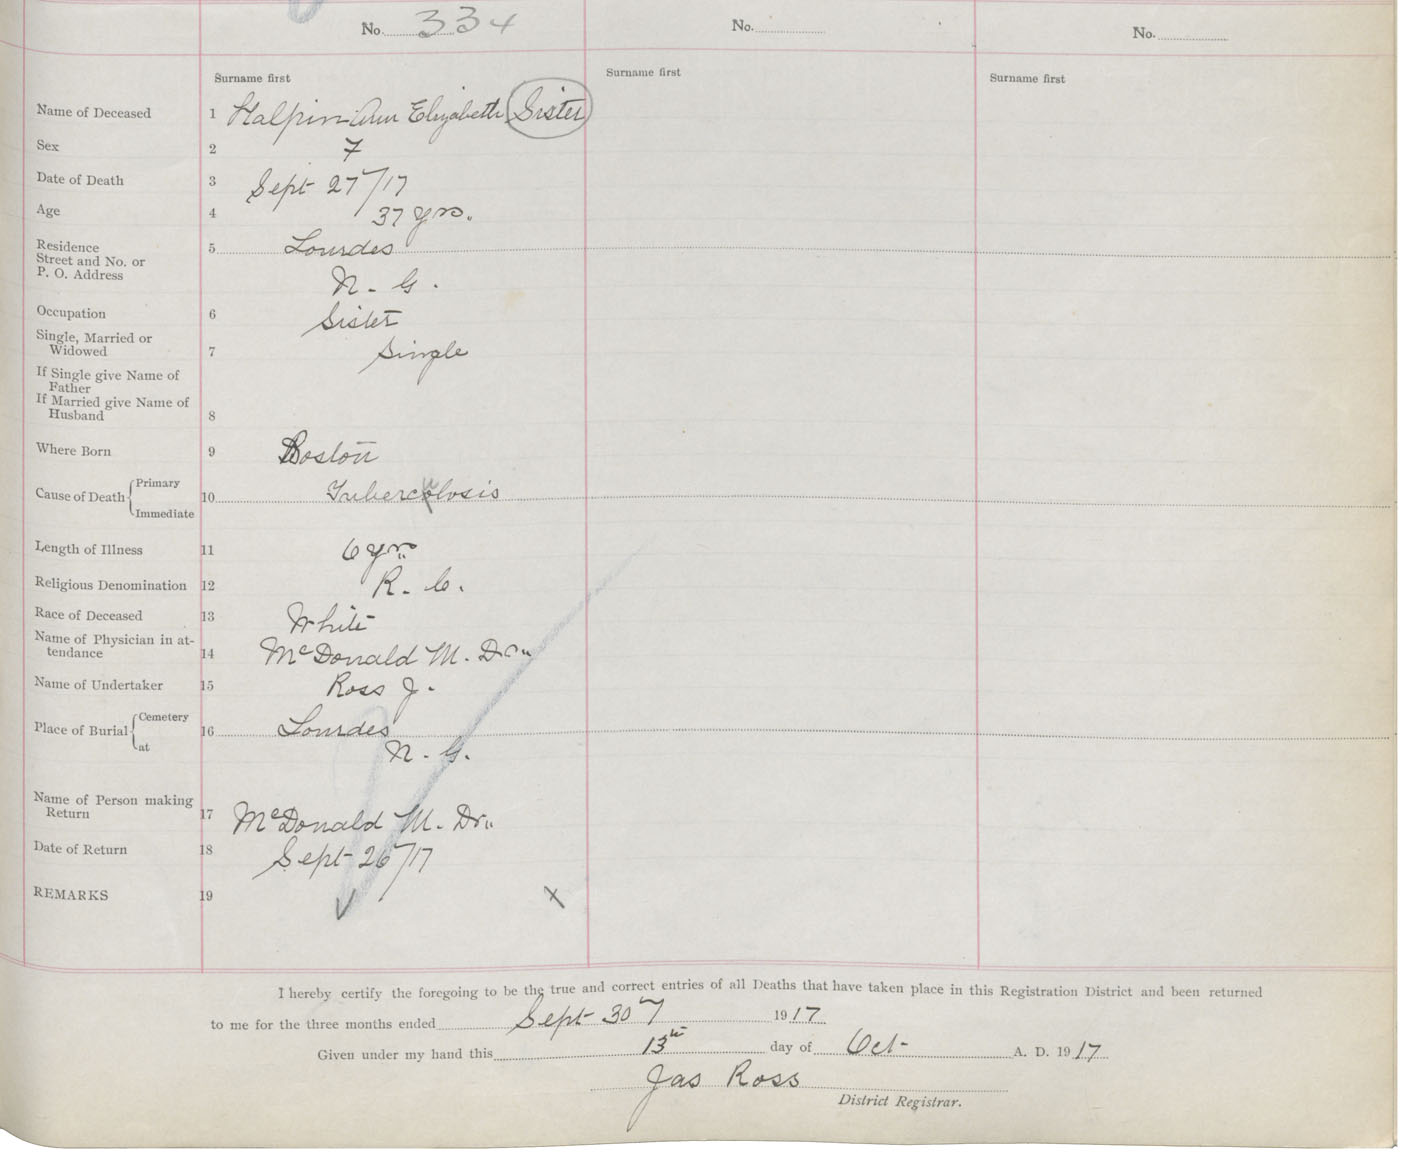 No. 334 No. No.
Surname first Surname first Surname first
Name of Deceased 1 Halpin Ann Elizabeth Sister
Sex 2 F
Date of Death 3 Sept 27/17
Age 4 37 yrs.
Residence 5 Lourdes
Street and No. or
P. O. Address N. G.
Occupation 6 Sister
Single, Married or
Widowed 7 Single
If Single give Name of
Father
If Married give Name of
Husband 8
Where Born 9 Boston
Cause of Death Primary
10 Tuberculosis
Immediate
Length of Illness 11 6 yrs
Religious Denomination 12 R. C.
Race of Deceased 13 White
Name of Physician in at-
tendance 14 McDonald M. Dr.
Name of Undertaker 15 Ross J.
Place of Burial Cemetery
16 Lourdes
at N. G.
Name of Person making
Return 17 McDonald M. Dr.
Date of Return 18 Sept 26/17
REMARKS 19
I hereby certify the foregoing to be the true and correct entries of all Deaths that have taken place in this Registration District and been returned
to me for the three months ended Sept 30 1917
Given under my hand this 13th day of Oct A. D. 1917
Jas Ross
District Registrar.